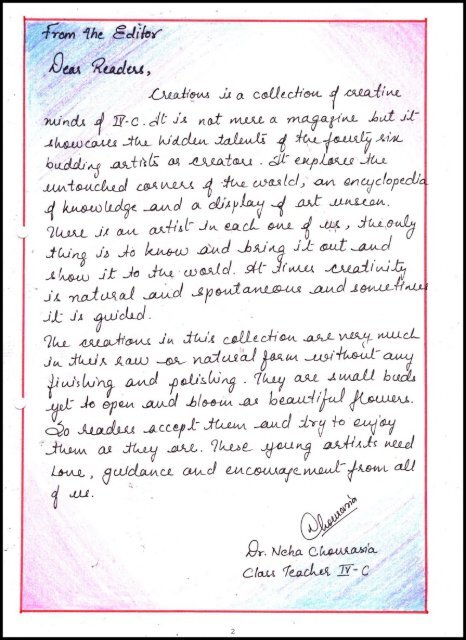 From the Editor
Dear Readers,
Creations is a collection of creative
minds of IV-C. It is not mere a magazine but it
showcases the hidden talents of the fourty six
budding artists or creators. It explores the
untouched corners of the world, an encyclopedia
of knowledge and a display of art unseen.
There is an artist in each one of us, the only
thing is to know and bring it out and
show it to the world. At times creativity
is natural and spontaneous and sometimes
it is guided.
The creations in this collection are very much
in their raw or natural form without any
finishing and polishing. They are small buds
yet to open and bloom as beautiful flowers.
So readers accept them and try to enjoy
them as they are. These young artists need
love, guidance and encouragement from all
of us.
Chourasia
Dr. Neha Chourasia
Class Teacher IV-C
2